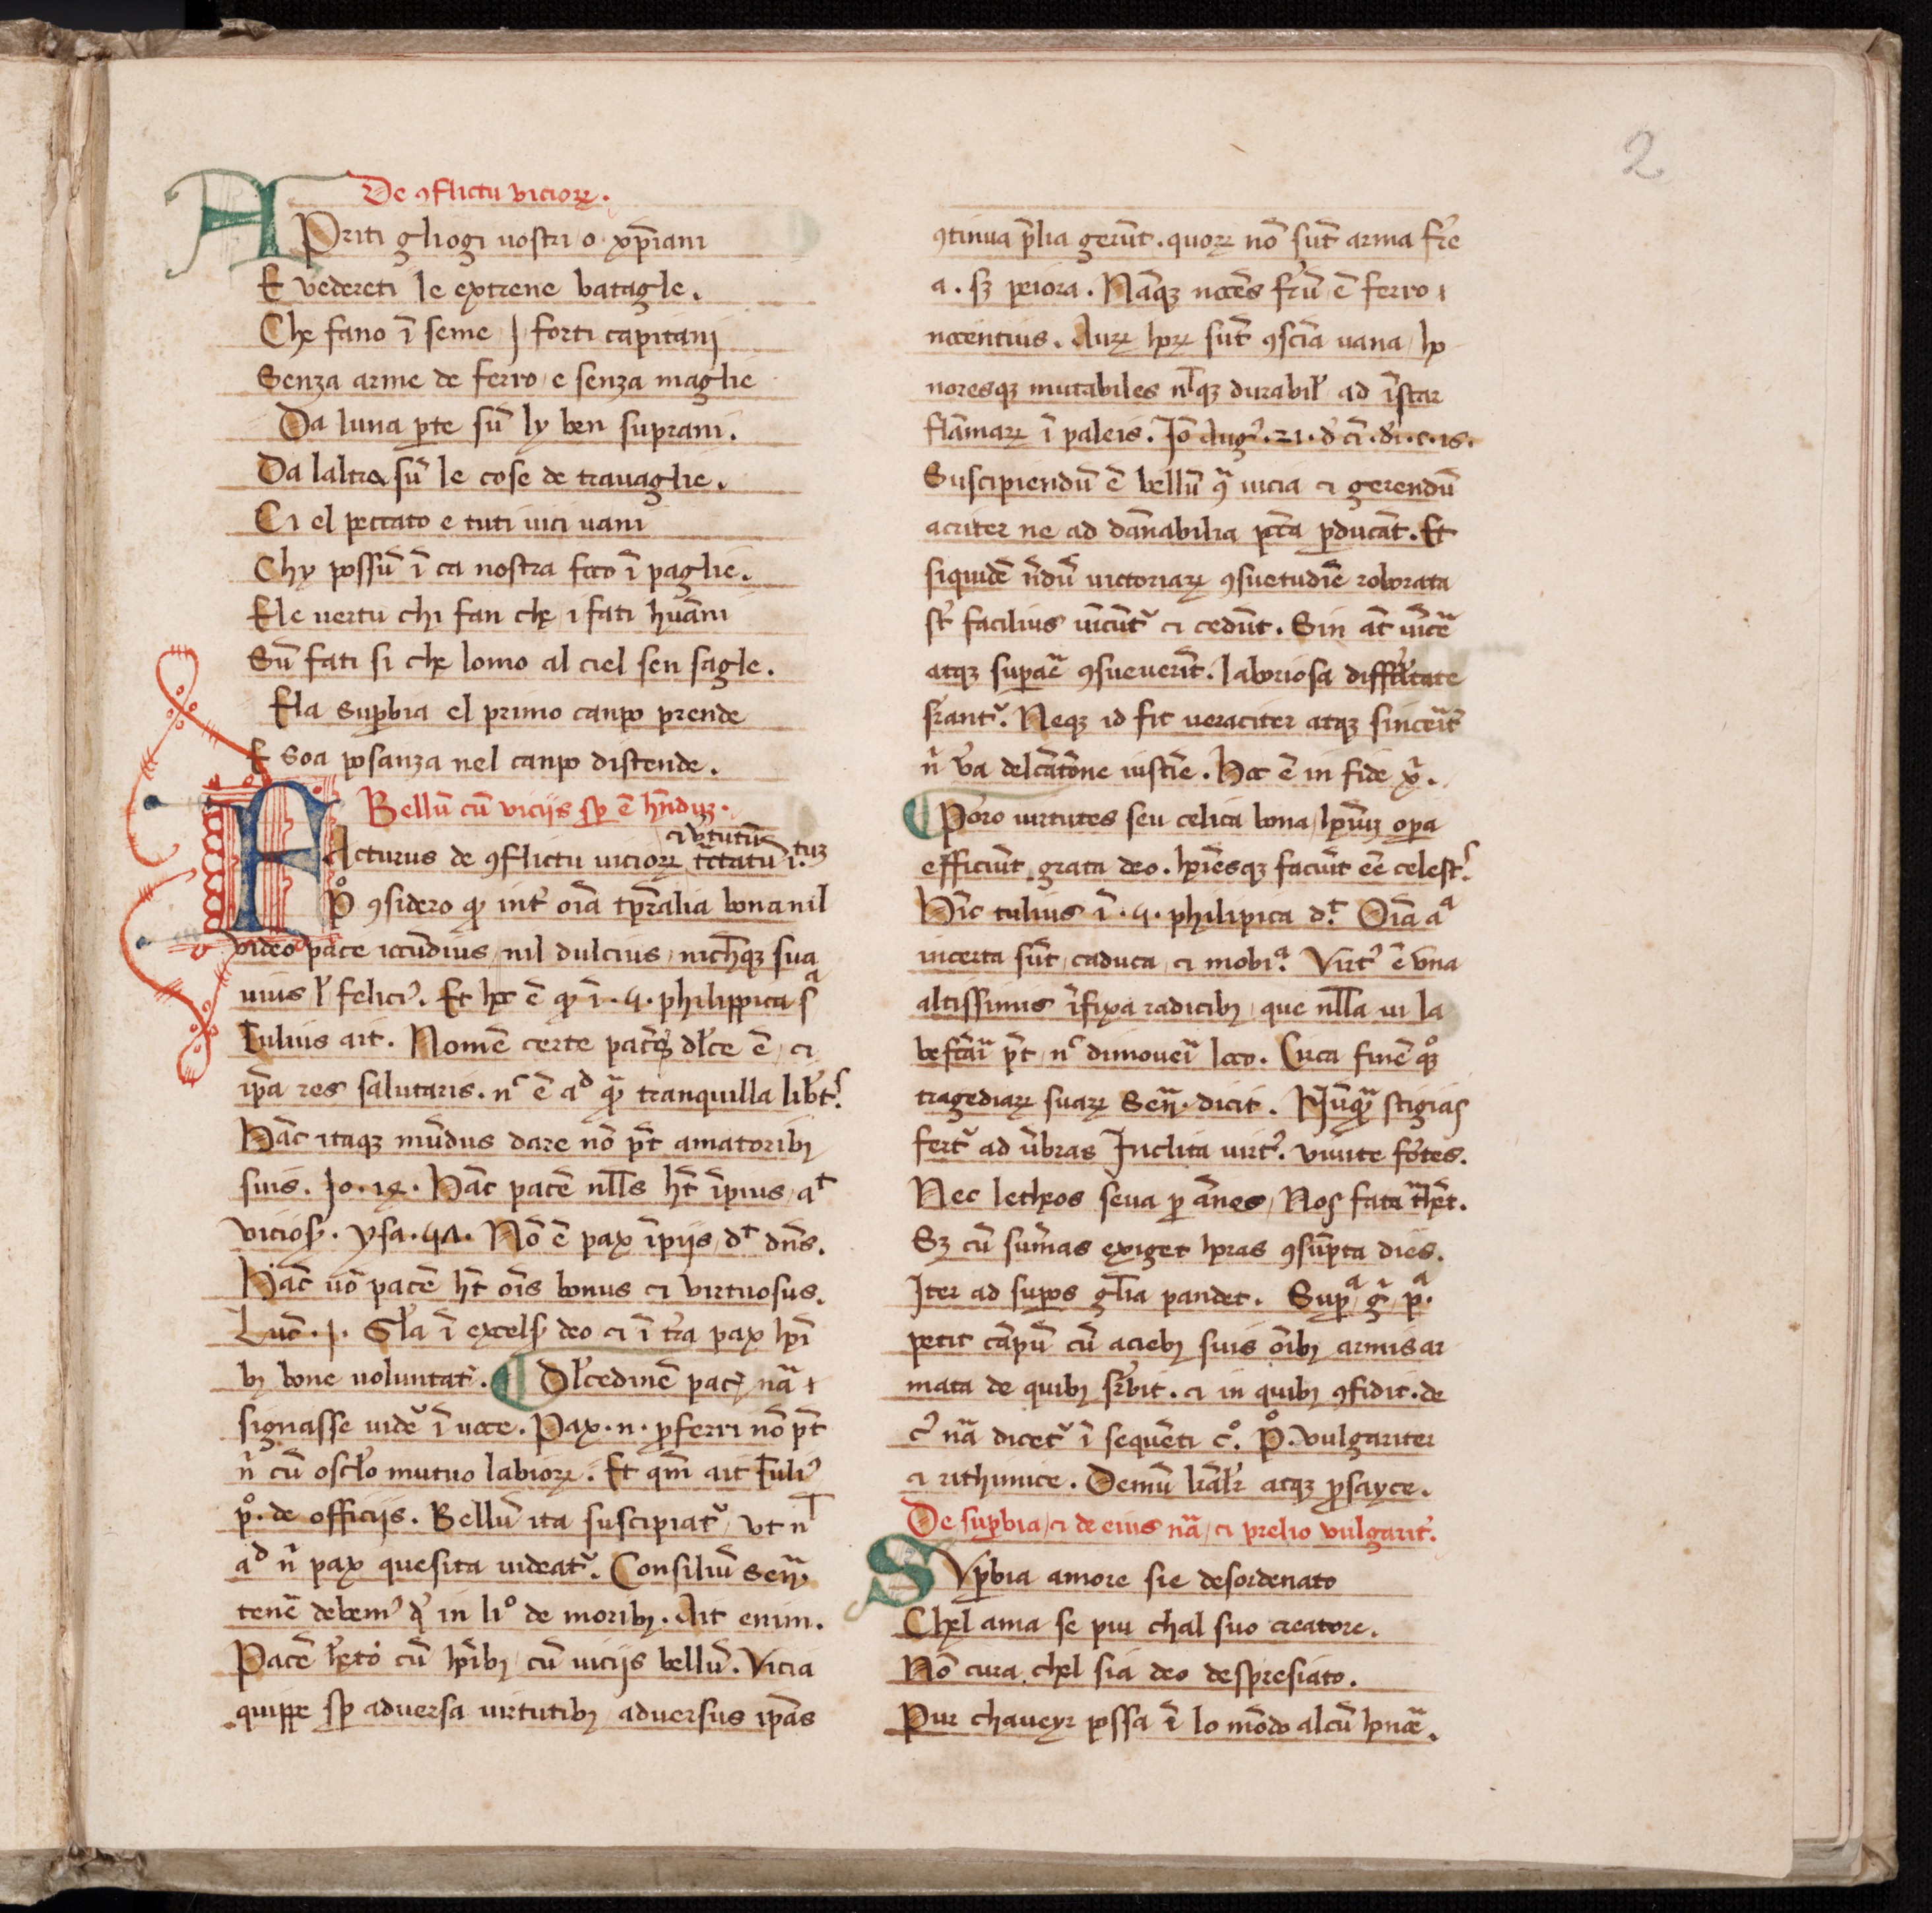 2
De ꝯflictu vicioꝝ.
APriti gliogi uostri o xp̄iani
E vedereti le extrene batagle.
Che fano ī seme j forti capitanj
Senza arme de ferro e senza maglie
Da luna ꝑte sū ly ben suprani.
Da laltra sū le cose de trauaglie.
Ci el peccato e tuti uici uani
Chy possū ī ca nostra foco ī paglie.
Ele uertu chi fan che i fati huāni
Sū fati si che lomo al ciel sen sagle.
Ela suꝑbia el primo canpo prende
E soa posanza nel canpo distende.
Bellū cū viciis sꝑ ē hn̄duꝫ.
ci v̓tutū
FActurus de ꝯflictu uicioꝝ tc̄tatū ī.tuꝫ
P̊ ꝯsidero ꝙ int̓ oīa tꝑalia bona nil
video pace iocūdius nil dulcius nichꝗꝫ sua
uius ł felici᾿. Et hoc ē ꝙ ī .4. philippica sᵃ
Tulius ait. Nomē certe pac̄ꝭ dłce ē ci
ip̄a res salutaris. nᶜ ē aᵈ ꝙ̄ tranquilla lib̓t.
Hāc itaqꝫ mūdus dare nō pt̄ amatoribꝫ
suis. Jo.14. Hāc pacē nlls ht̄ īpius aᵗ
vicioſ. ysa.47. Nō ē pax īpijs dᵗ dn̄s.
Hāc uō pacē ht̄ oīs bonus ci virtuosus.
Luc̄.j. Gła ī excelſ deo ci ī tr̄a pax hoī
bꝫ bone uoluntatꝭ. ¶ Dłcedinē pacꝭ nā ı
signasse uidet᷑ ī uoce. Pax.n. ꝓferri nō pt̄
n̄ cū oscło mutuo labioꝝ. Et qm̄ ait Tuli᾿
p̊. de officijs. Bellū ita suscipiat᷑ vt nᵗ
aᵈ n̄ pax quesita uideat᷑. Consiliū Señ
tenē debem᾿ ꝗ in liº de moribꝫ. Ait enim.
Pacē hēto cū hoībꝫ cū uicijs bellū. Vicia
quippe sꝑ aduersa uirtutibꝫ aduersus ip̄as
ꝯtinua p̄lia gerūt. quoꝝ nō sūt arma fr̄e
a. sꝫ peiora. Nāqꝫ nocēs fr̄ū ē ferro ı
nocentius. Auꝝ hoꝝ sūt ꝯscīa uana ho
noresqꝫ mutabiles nᵗqꝫ durabił ad īstar
flāmaꝝ ī paleis. Jō Aug᾿.21. d̓ ci. di.c.16.
Suscipiendū ē bellū ꝯ uicia ci gerendū
acriter ne ad dānabilia pctā ꝑducāt. Et
siquidē n̄dū uictoriaꝝ ꝯsuetudīe roborata
st̓ facilius uīcūt᷑ ci cedūt. Sin āt uīcē
atqꝫ suꝑaē ꝯsueuerīt. laboriosa difficłtate
sr̄ant᷑. Neqꝫ id fit ueraciter atqꝫ sincerit̓
n̄ v̓a delc̄atōne iustīe. Hoc ē in fide x̄.
¶ Porro uirtutes seu celica bona hoīuꝫ oꝑa
efficiūt grata deo. hoīesqꝫ faciūt eē celest.
Hīc tulius ī .4. philipica dᵗ. Oīa aᵃ
incerta sūt caduca ci mobiᵃ. Virt᾿ ē vna
altissimis īfixa radicibꝫ que nlla ui la
befc̄ai pt̄ nᶜ dimoueī loco. Circa finē qꝫ̊
tragediaꝝ suaꝝ Señ. dicit. Nūꝙ̄ stigias
fert᷑ ad ūbras Jnclita uirt᾿. viuite fortes.
Nec letheos seua ꝑ ānes Nos fata thēt.
Sꝫ cū sūmas exiget horas ꝯsūpta dies.
Jter ad suꝑos głia pandet. Suꝑᵃ g̓ pᵃ.
petit cāpū cū aciebꝫ suis oībꝫ armis ar
mata de quibꝫ sr̄bit. ci in quibꝫ ꝯfidit. de
c᾿ nā dicet᷑ ī sequēti c̊. P̊. vulgariter
ci rithimice. Demū lr̄ałr atqꝫ ꝓsayce.
De suꝑbia ci de eius nā ci prelio vulgarit̓.
SVꝑbia amore sie desordenato
Chel ama se piu chal suo creatore.
Nō cura chel sia deo despresiato.
Pur chaueyr possa ī lo mōdo alcū honoē.